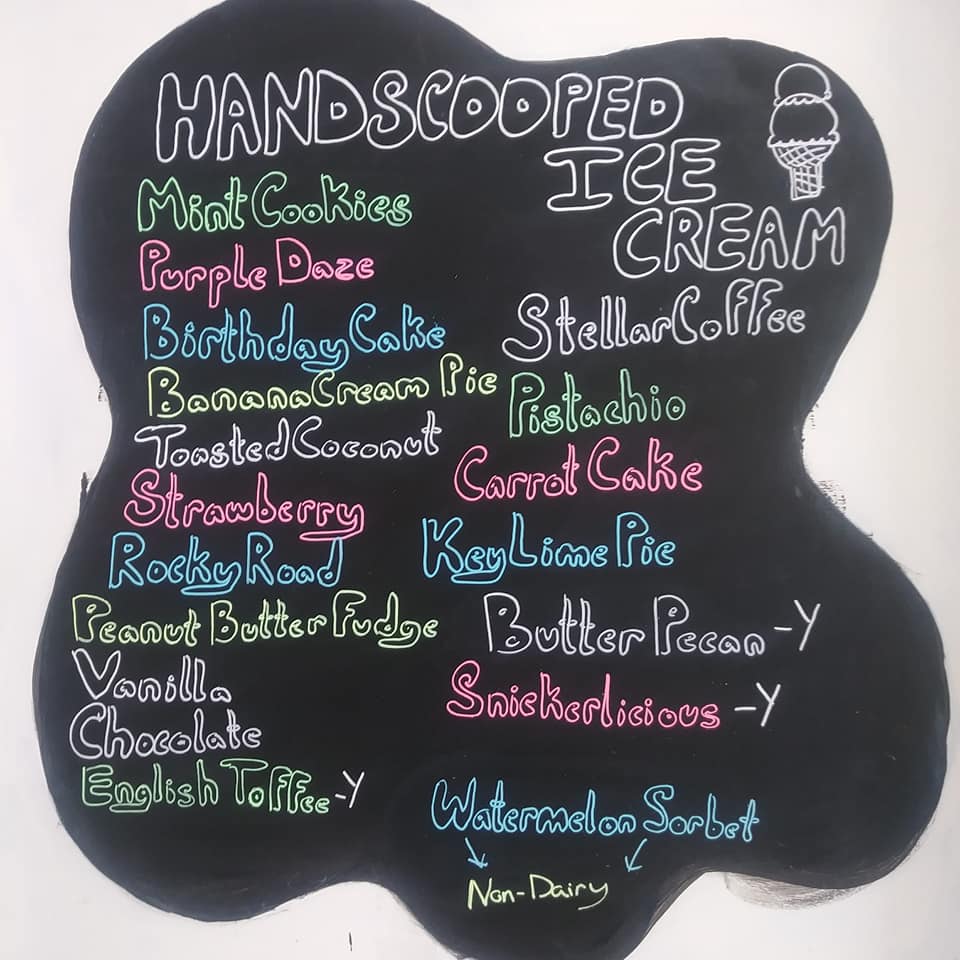 HANDSCOOPED
ICE
CREAM
Mint Cookies
Purple Daze
Birthday Cake
Banana Cream Pie
Toasted Coconut
Strawberry
Rocky Road
Peanut Butter Fudge
Vanilla
Chocolate
English Toffee -Y
Stellar Coffee
Pistachio
Carrot Cake
Key Lime Pie
Butter Pecan -Y
Snickerlicious -Y
Watermelon Sorbet
Non-Dairy